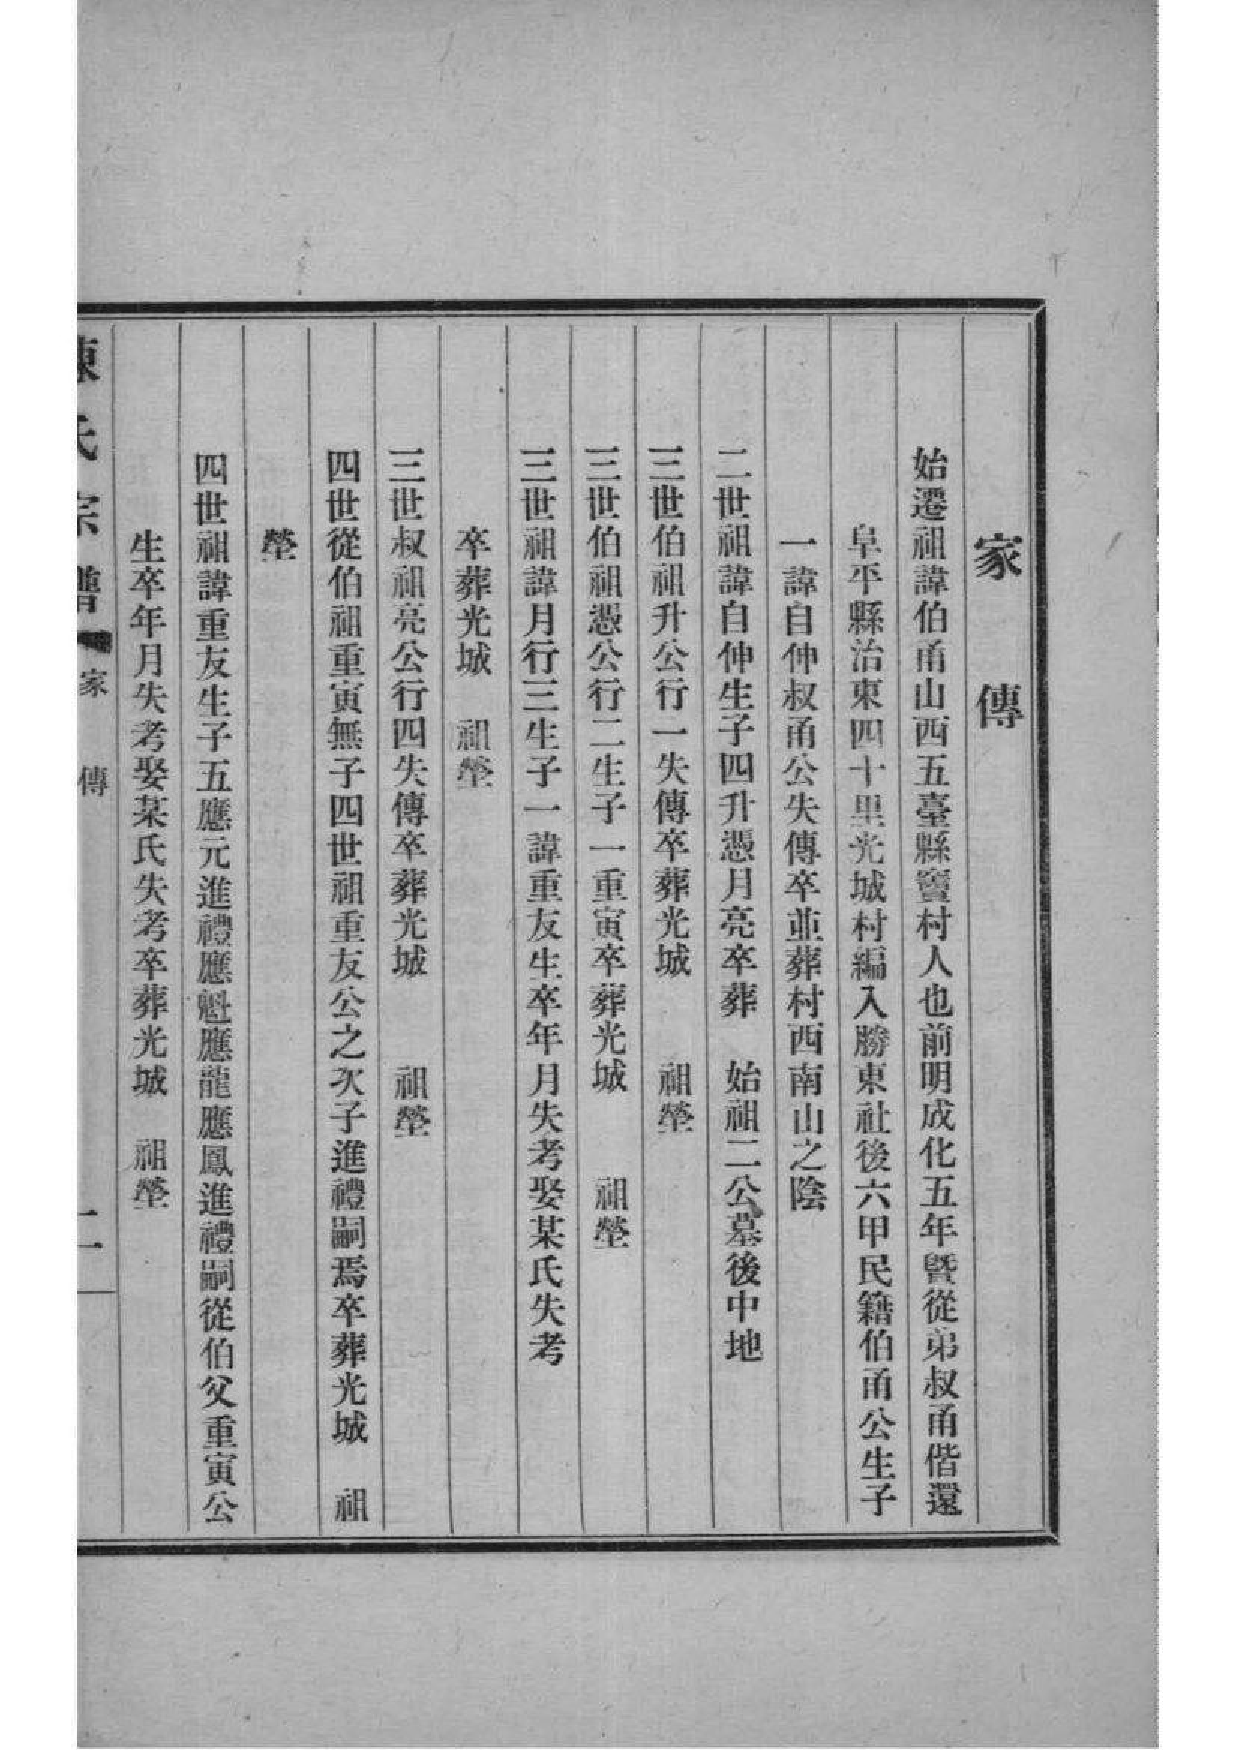 家傳
始遷祖諱伯甬山西五臺縣竇村人也前明成化五年暨從弟叔甬偕還
阜平縣治東四十里光城村編入勝東社後六甲民籍伯甬公生子
一諱自仲叔甬公失傳卒並葬村西南山之陰
二世祖諱自仲生子四升憑月亮卒葬 始祖二公墓後中地
三世伯祖升公行一失傳卒葬光城 祖塋
三世伯祖憑公行二生子一重寅卒葬光城 祖塋
三世祖諱月行三生子一諱重友生卒年月失考娶某氏失考
卒葬光城 祖塋
三世叔祖亮公行四失傳卒葬光城 祖塋
四世從伯祖重寅無子四世祖重友公之次子進禮嗣焉卒葬光城 祖
塋
四世祖諱重友生子五應元進禮應魁應龍應鳳進禮嗣從伯父重寅公
生卒年月失考娶某氏失考卒葬光城 祖塋
陳氏宗譜 家傳 二